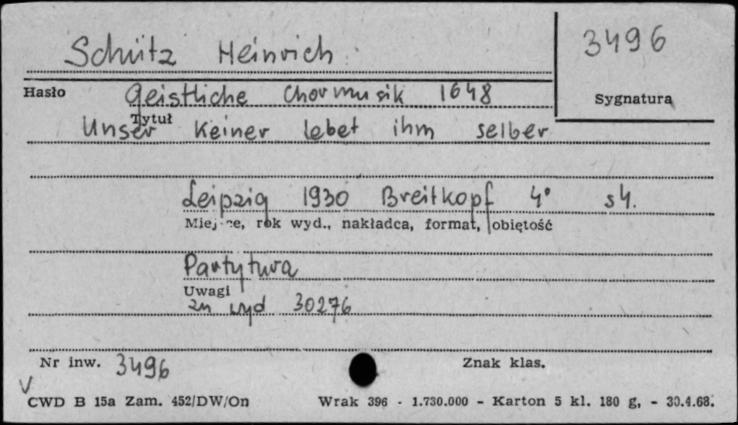 Schütz Heinrich
3496
Hasło
Geistliche Chormusik 1648
Sygnatura
Tytuł
Unser keiner lebet ihm selber
Leipzig 1930 Breitkopf 4° s4.
Miejsce, rok wyd., nakładca, format, obiętość
Partytura
Uwagi
zn wyd 30276
Nr inw. 3496
Znak klas.
V
CWD B 15a Zam. 452/DW/On Wrak 396 - 1.730.000 - Karton 5 kl. 180 g, - 30.4.68.